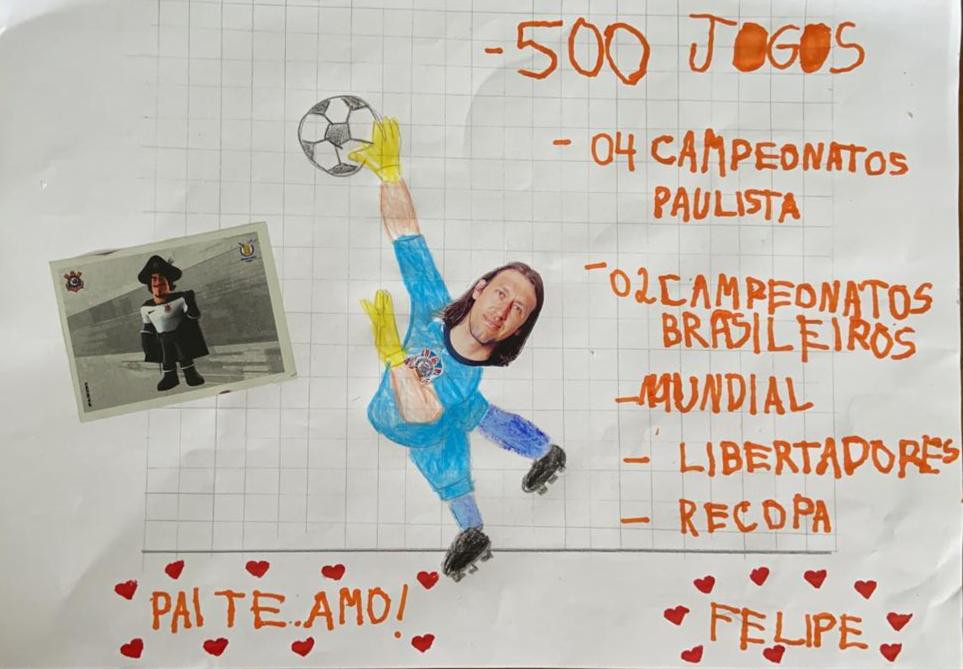 -500 JOGOS
- 04 CAMPEONATOS
PAULISTA
- 02 CAMPEONATOS
BRASILEIROS
-MUNDIAL
- LIBERTADORES
- RECOPA
PAI TE..AMO!
FELIPE